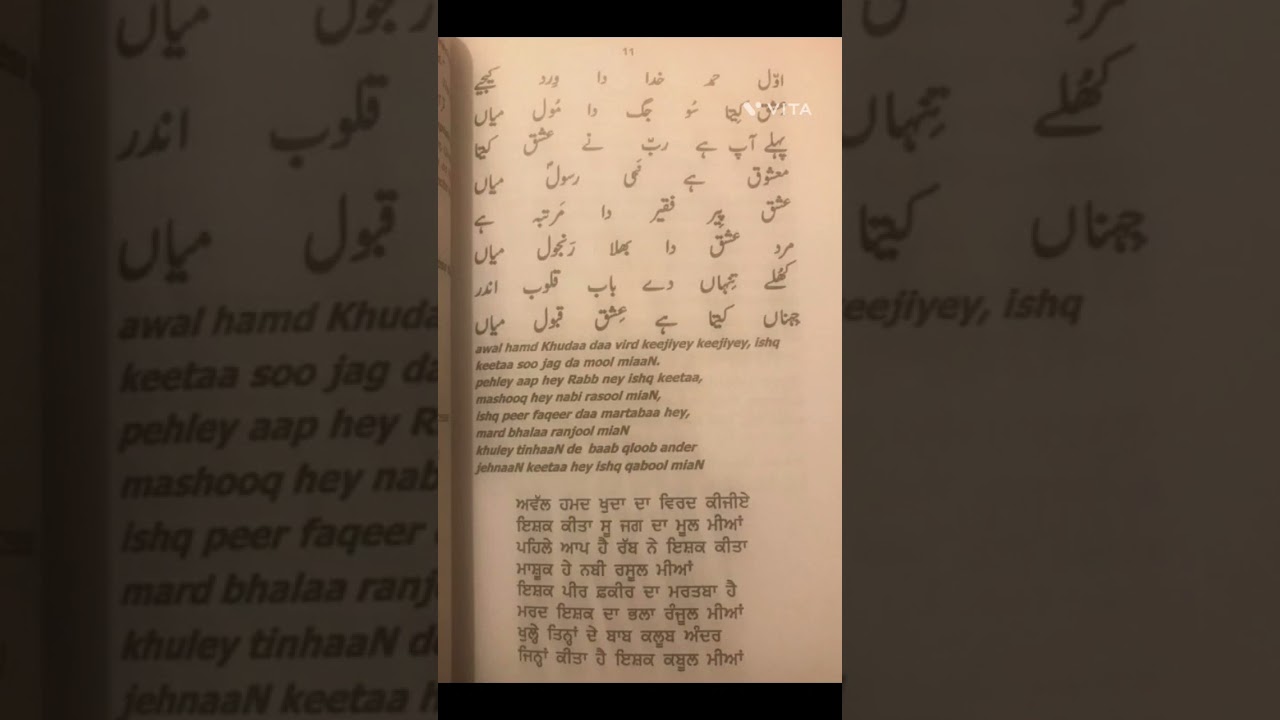 11
اوّل حمد خدا دا وِرد کیجیے
عشق کیتا سُو جگ دا مُول میاں
پہلے آپ ہے ربّ نے عشق کیتا
معشوق ہے نبی رسولؐ میاں
عشق پیر فقیر دا مَرتبہ ہے
مرد عشق دا بھلا رَنجول میاں
کُھلے تِنہاں دے باب قلوب اندر
جِہناں کیتا ہے عِشق قبول میاں
awal hamd Khudaa daa vird keejiyey keejiyey, ishq
keetaa soo jag da mool miaaN.
pehley aap hey Rabb ney ishq keetaa,
mashooq hey nabi rasool miaN,
ishq peer faqeer daa martabaa hey,
mard bhalaa ranjool miaN
khuley tinhaaN de baab qloob ander
jehnaaN keetaa hey ishq qabool miaN
ਅਵੱਲ ਹਮਦ ਖੁਦਾ ਦਾ ਵਿਰਦ ਕੀਜੀਏ
ਇਸ਼ਕ ਕੀਤਾ ਸੂ ਜਗ ਦਾ ਮੂਲ ਮੀਆਂ
ਪਹਿਲੇ ਆਪ ਹੈ ਰੱਬ ਨੇ ਇਸ਼ਕ ਕੀਤਾ
ਮਾਸ਼ੂਕ ਹੇ ਨਬੀ ਰਸੂਲ ਮੀਆਂ
ਇਸ਼ਕ ਪੀਰ ਫ਼ਕੀਰ ਦਾ ਮਰਤਬਾ ਹੈ
ਮਰਦ ਇਸ਼ਕ ਦਾ ਭਲਾ ਰੰਜੂਲ ਮੀਆਂ
ਖੁਲ੍ਹੇ ਤਿਨ੍ਹਾਂ ਦੇ ਬਾਬ ਕਲੂਬ ਅੰਦਰ
ਜਿਨ੍ਹਾਂ ਕੀਤਾ ਹੈ ਇਸ਼ਕ ਕਬੂਲ ਮੀਆਂ
VITA